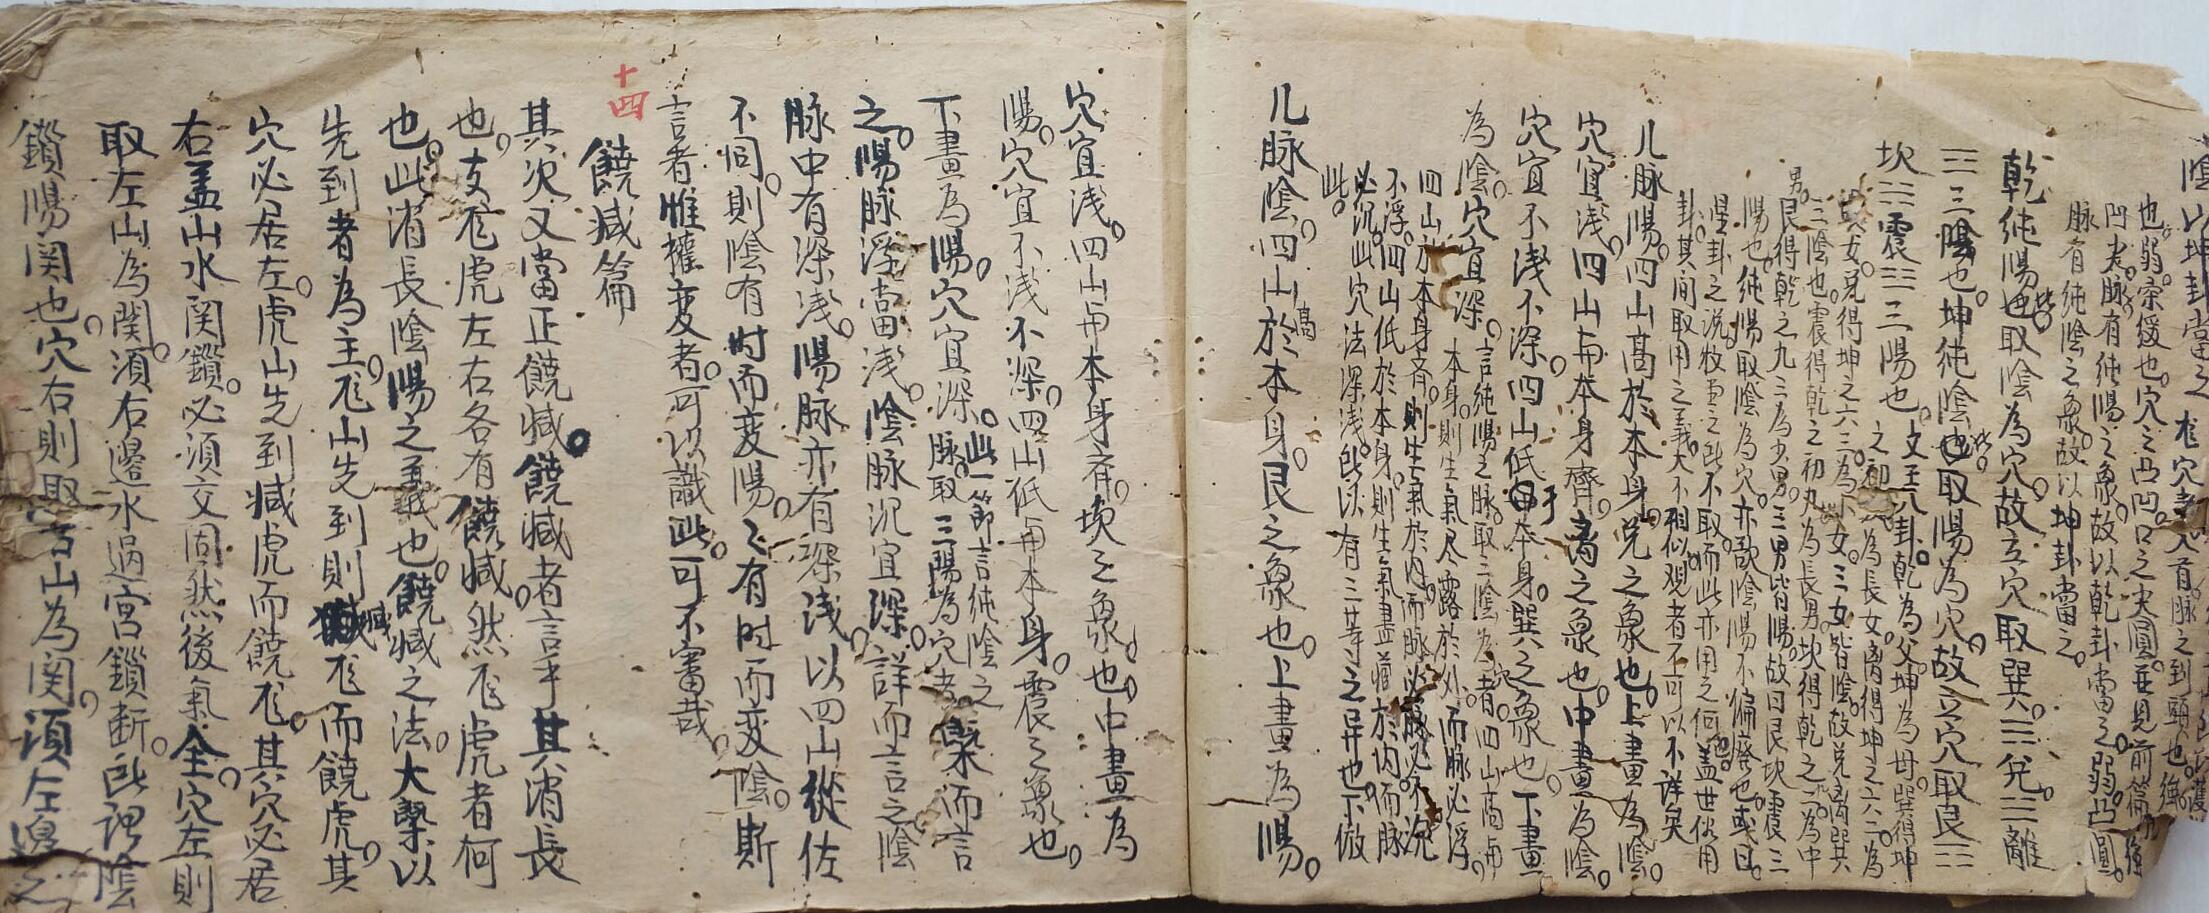 陰以坤卦當之
也弱柔緩也穴之凸凹口之尖圓並見前篇
凹尖脉有純陽之象故以乾卦當之弱凸圓
脉有純陰之象故以坤卦當之
乾純陽也取陰為穴故立穴取巽☴兌☱離
☲三陰也坤純陰也取陽為穴故立穴取艮☶
坎☵震☳三陽也文王八卦乾為父坤為母巽得坤
之初六為長女離得坤之六二為
中女兌得坤之六三為少女三女皆陰故兌離巽
三陰也震得乾之初九為長男坎得乾之九二為中
男艮得乾之九三為少男三男皆陽故曰艮坎震三
陽也純陽取陰為穴亦欲陰陽不偏廢也或曰
星卦之說牧堂之所不取而此亦用之何也盖世俗用
卦其間取用之義大不相似觀者不可以不詳矣
凡脉陽四山高於本身兌之象也上畫為陰
穴宜淺四山与本身齊離之象也中畫為陰
穴宜不淺不深四山低于本身巽之象也下畫
為陰穴宜深言純陽之脉取三陰為穴者四山高与
本身則生氣尽露於外而脉必浮
四山於本身齊則生氣於內而脉必不沉
不浮四山低於本身則生氣盡藏於內而脉
必沉此穴法深淺所以有三等之异也下倣
此
凡脉陰四山高於本身艮之象也上畫為陽
穴宜淺四山与本身齊坎之象也中畫為
陽穴宜不淺不深四山低与本身震之象也
下畫為陽穴宜深此一節言純陰之
脉取三陽為穴者槩而言
之陽脉浮當淺陰脉沉宜深詳而言之陰
脉中有深淺陽脉亦有深淺以四山從佐
不同則陰有时而变陽〻有时而变陰斯
言者惟權变者可以識此可不審哉
十四
饒減篇
其次又當正饒減饒減者言乎其消長
也友龙虎左右各有饒減然龙虎者何
也此消長陰陽之義也饒減之法大槩以
先到者為主龙山先到則減龙而饒虎其
穴必居左虎山先到減虎而饒龙其穴必居
右盖山水関鎖必須交固然後氣全穴左則
取左山為関須右邊水過宮鎖断所謂陰
鎖陽関也穴右則取右山為関須左邊之